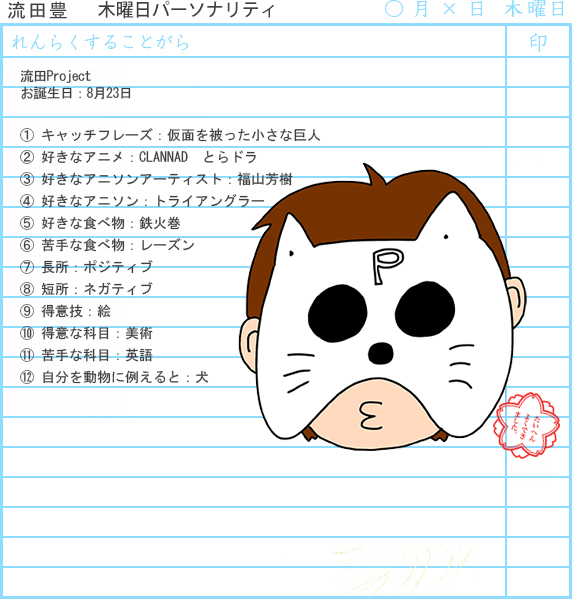 流田豊　木曜日パーソナリティ　〇月×日 木曜日
れんらくすることがら　印
流田Project
お誕生日：8月23日
① キャッチフレーズ：仮面を被った小さな巨人
② 好きなアニメ：CLANNAD　とらドラ
③ 好きなアニソンアーティスト：福山芳樹
④ 好きなアニソン：トライアングラー
⑤ 好きな食べ物：鉄火巻
⑥ 苦手な食べ物：レーズン
⑦ 長所：ポジティブ
⑧ 短所：ネガティブ
⑨ 得意技：絵
⑩ 得意な科目：美術
⑪ 苦手な科目：英語
⑫ 自分を動物に例えると：犬
P
たいへん
よくでき
ました